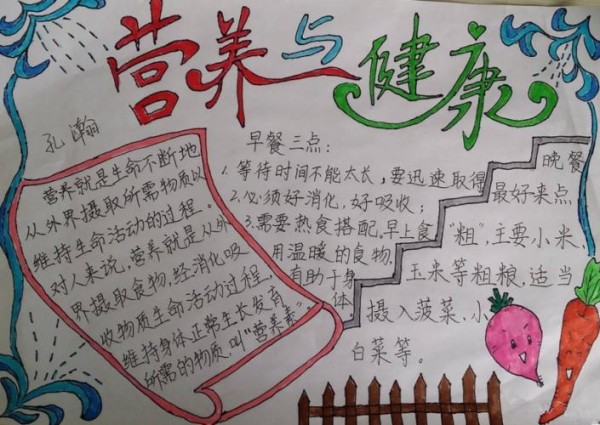 营养与健康
孔瀚
营养就是生命不断地
从外界摄取所需物质以
维持生命活动的过程。
对人来说,营养就是从外
界摄取食物,经消化吸
收物质生命活动过程,
维持身体正常生长发育
所需的物质,叫“营养素”
早餐三点:
1.等待时间不能太长,要迅速取得
2.必须好消化,好吸收;
3.需要热食搭配,早上食
用温暖的食物,
有助于身
体
晚餐
最好来点
“粗”,主要小米、
玉米等粗粮,适当
摄入菠菜,小
白菜等。